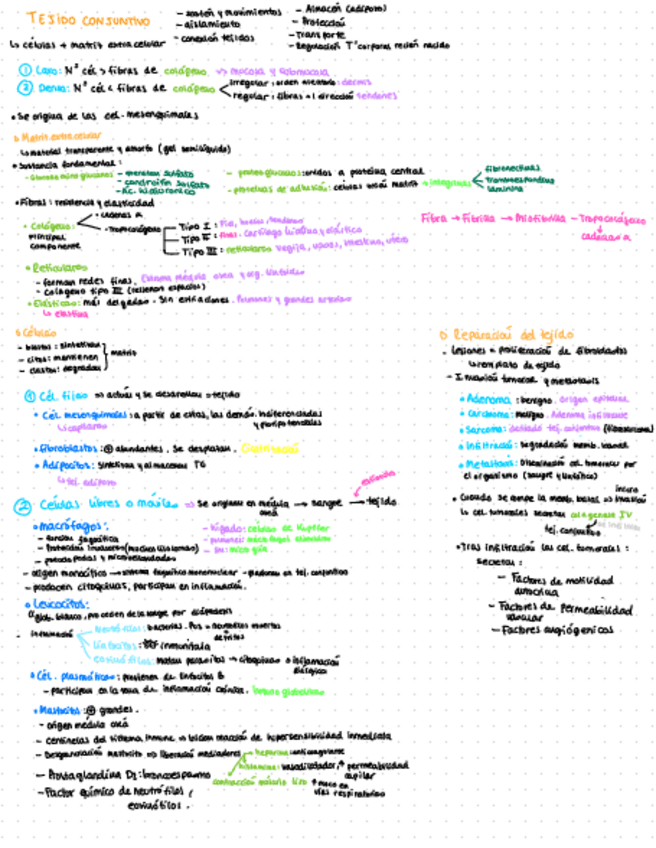 TEJIDO CONJUNTIVO
- sostén y movimientos
- aislamiento
- conexión tejidos
- Almacén (adiposo)
- Protección
- Transporte
- Regulación Tª corporal recién nacido
↳ células + matriz extracelular
① Laxo: Nº cél > fibras de colágeno ⇒ mucosa y submucosa
② Denso: Nº cél < fibras de colágeno
irregular: orden aleatorio: dermis
regular: fibras = 1 dirección tendones
• Se origina de las cel. mesenquimales
Matriz extracelular
↳ material transparente y amorfo (gel semilíquido)
• Sustancia fundamental:
- condroitín sulfato
- Ác. hialurónico
- proteoglucanos: unidos a proteína central
- proteínas de adhesión: células matriz → integrinas
fibronectinas
laminina
• Fibras: resistencia y elasticidad
• Colágeno:
principal
componente
- cadenas α
- tropocolágeno
Tipo I: tendones
Tipo II: cartílago hialino y elástico
Tipo III: reticulares
Fibra → Fibrilla → Miofibrilla - Tropocolágeno
↳ cadenas α
• Reticulares
- forman redes finas.
- colágeno tipo III (rellenan espacios)
• Elásticas: más delgadas. Sin estriaciones. Pulmones y grandes arterias
↳ elastina
Células
- blastos: sintetizan
- citos: mantienen
- clastos: degradan
matriz
① Cél. fijas ⇒ actúan y se desarrollan = tejido
• Cél. mesenquimales: a partir de estas, las demás. Indiferenciadas
y pluripotenciales
↳ capilares
• Fibroblastos: ⊕ abundantes. Se desplazan.
• Adipocitos: sintetizan y almacenan TG
↳ tej. adiposo
② Células libres o móviles ⇒ Se originan en médula → sangre → tejido
ósea
• macrófagos:
- función fagocítica
- hígado: células de Kupffer
- SN: microglía
- origen monocítico → sistema fagocítico mononuclear
- producen citoquinas, participan en inflamación.
• Leucocitos:
- Inflamación
neutrófilos: bacterias. Pus = neutrófilos muertos
linfocitos: immunitaria
eosinófilos: matan parásitos → citoquinas → inflamación
alérgica
• Cél. plasmáticas: provienen de linfocitos B
- participan en la zona de inflamación crónica.
• Mastocitos: ⊕ grandes.
- origen médula ósea
- centinelas del sistema inmune ⇒ inician reacción de hipersensibilidad inmediata
- Desgranulación mastocito ⇒ liberación mediadores
heparina: anticoagulante
histamina: vasodilatador, ↑ permeabilidad
capilar
contracción músculo liso
↑ moco en
vías respiratorias
- Prostaglandina D2: broncoespasmo
- Factor químico de neutrófilos,
eosinófilos.
Reparación del tejido
- Lesiones = proliferación de fibroblastos
↳ reemplazo de tejido
- Invasión tumoral y metástasis
• Adenoma: benigno. origen epitelial
• Carcinoma: maligno. Adenoma infiltrante
• Infiltración: degradación memb. basal
• Metástasis: Diseminación cél. tumorales por
el organismo (sangre y linfático)
• Cuando se rompe la memb. basal ⇒ invasión
↳ cél tumorales secretan colagenasa IV
tej. conjuntivo
• Tras infiltración las cél. tumorales:
secretan:
- Factores de motilidad
autocrina
- Factores de permeabilidad
vascular
- Factores angiógenicos